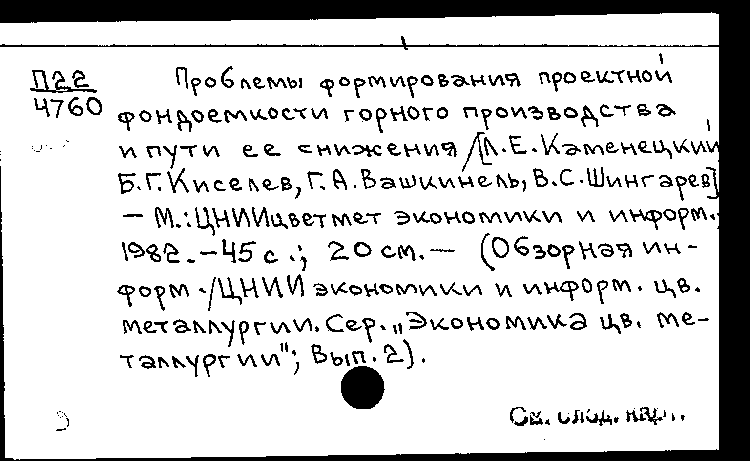 П22
4760
Проблемы формирования проектной
фондоемкости горного производства
и пути ее снижения /[Л.Е. Каменецкий
Б.Г. Киселев, Г.А. Вашкинель, В.С. Шингарев]
— М.: ЦНИИцветмет экономики и информ.,
1982. — 45 с.; 20 см. — (Обзорная ин-
форм. /ЦНИИ экономики и информ. цв.
металлургии. Сер. „Экономика цв. ме-
таллургии"; Вып. 2).
См. след.